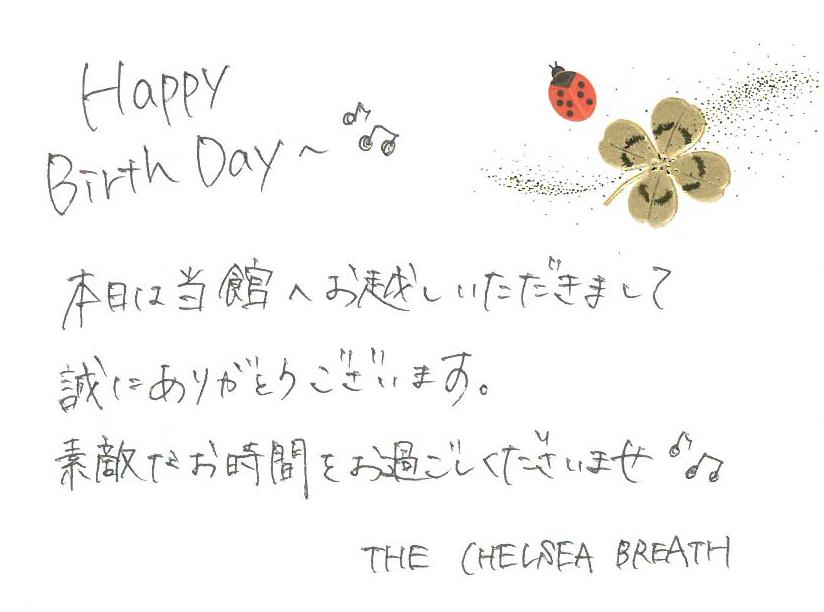 Happy
Birth Day～♪♫
本日は当館へお越しいただきまして
誠にありがとうございます。
素敵なお時間をお過ごしくださいませ♪♫
THE CHELSEA BREATH